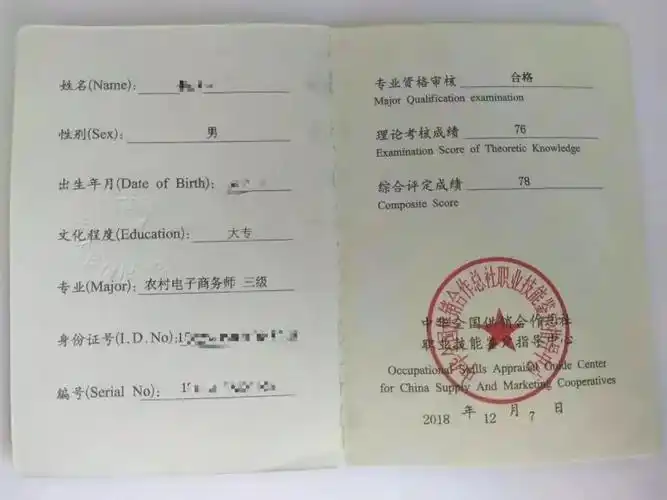 姓名(Name):
性别(Sex): 男
出生年月(Date of Birth):
文化程度(Education): 大专
专业(Major): 农村电子商务师 三级
身份证号(I.D.No):15
编号(Serial No):
专业资格审核 合格
Major Qualification examination
理论考核成绩 76
Examination Score of Theoretic Knowledge
综合评定成绩 78
Composite Score
中华全国供销合作总社
职业技能鉴定指导中心
Occupational Skills Appraisal Guide Center
for China Supply And Marketing Cooperatives
2018 年 12 月 7 日